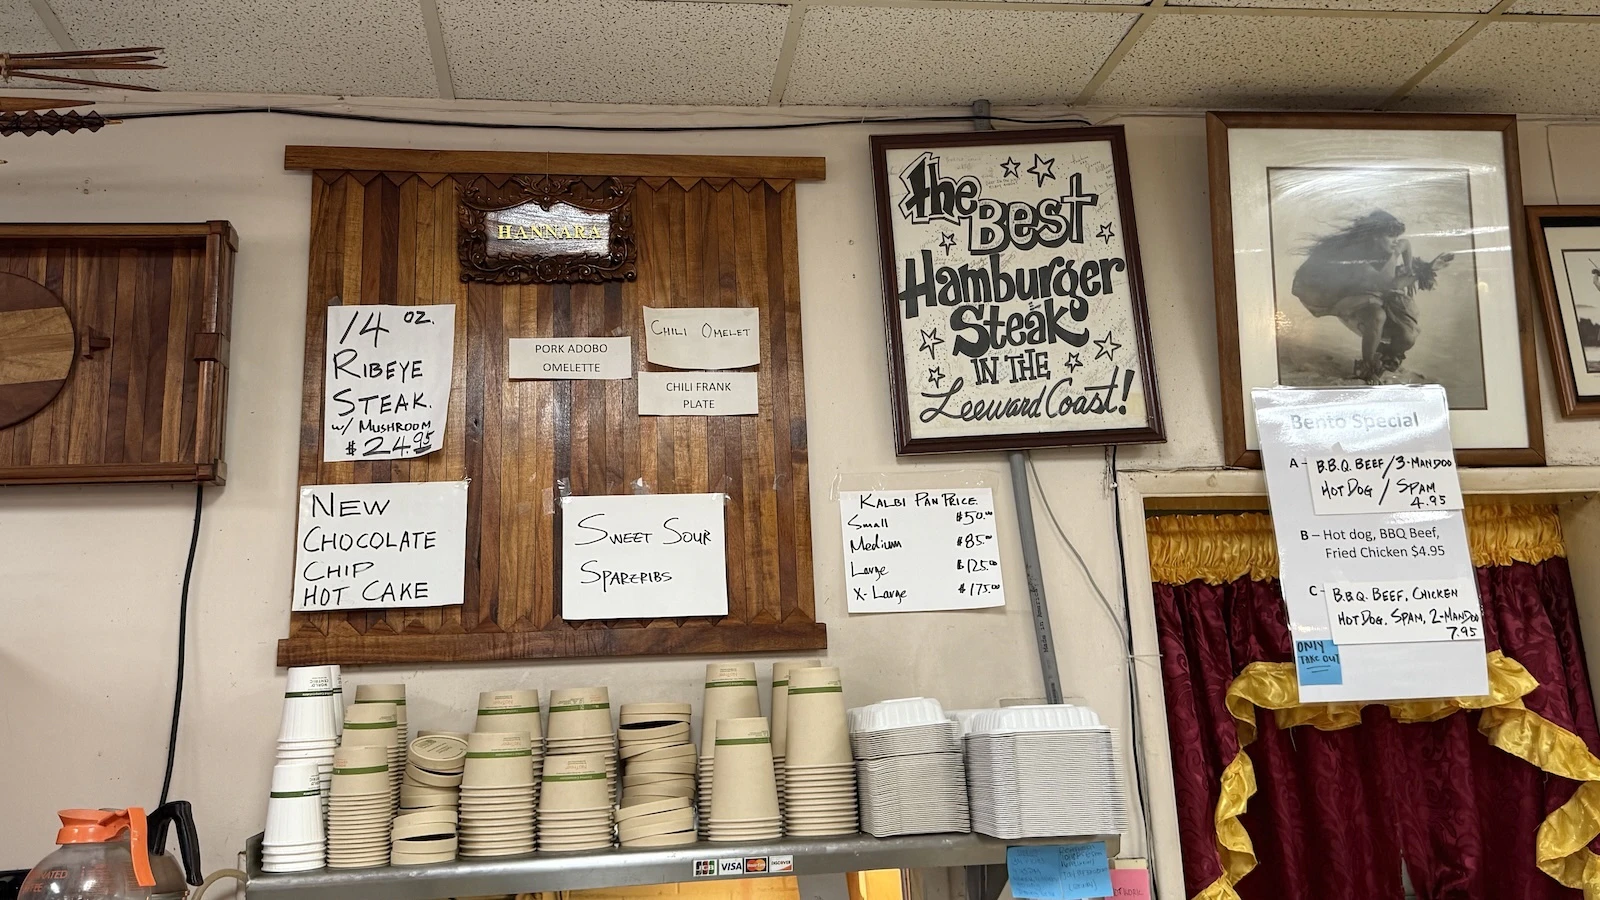 HANNARA
14 OZ.
RIBEYE
STEAK.
w/ MUSHROOM
$24.95
PORK ADOBO
OMELETTE
CHILI OMELET
CHILI FRANK
PLATE
NEW
CHOCOLATE
CHIP
HOT CAKE
SWEET SOUR
SPARERIBS
the
Best
Hamburger
Steak
IN THE
Leeward Coast!
KALBI PAN PRICE
Small $50.00
Medium $85.00
Large $125.00
X-Large $175.00
Bento Special
A - B.B.Q. BEEF/3-MANDOO
HOT DOG / SPAM
4.95
B – Hot dog, BBQ Beef,
Fried Chicken $4.95
C - B.B.Q. BEEF, CHICKEN
HOT DOG, SPAM, 2-MANDOO
7.95
ONLY
TAKE OUT
JCB VISA MasterCard DISCOVER